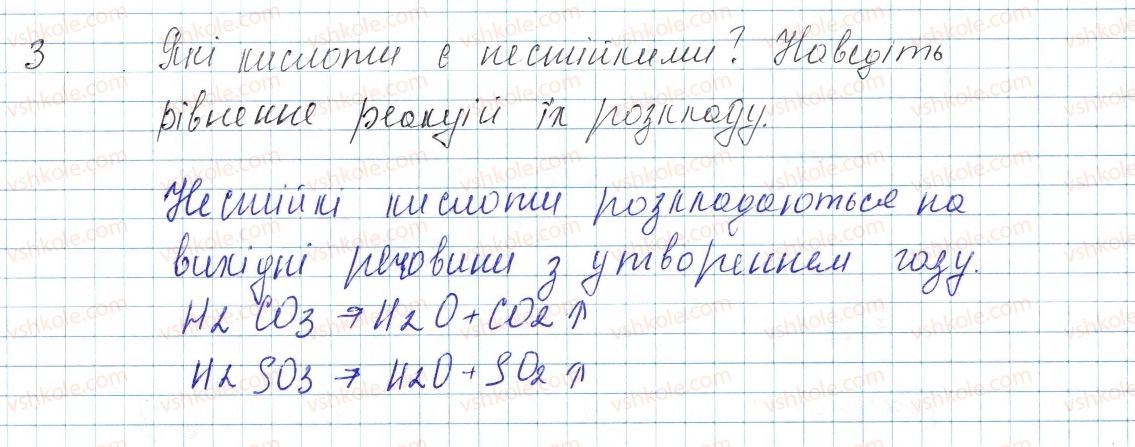 3 Які кислоти є нестійкими? Наведіть
рівнення реакцій їх розкладу.
Нестійкі кислоти розкладаються на
вихідні речовини з утворенням газу.
H2 CO3 → H2O + CO2 ↑
H2 SO3 → H2O + SO2 ↑